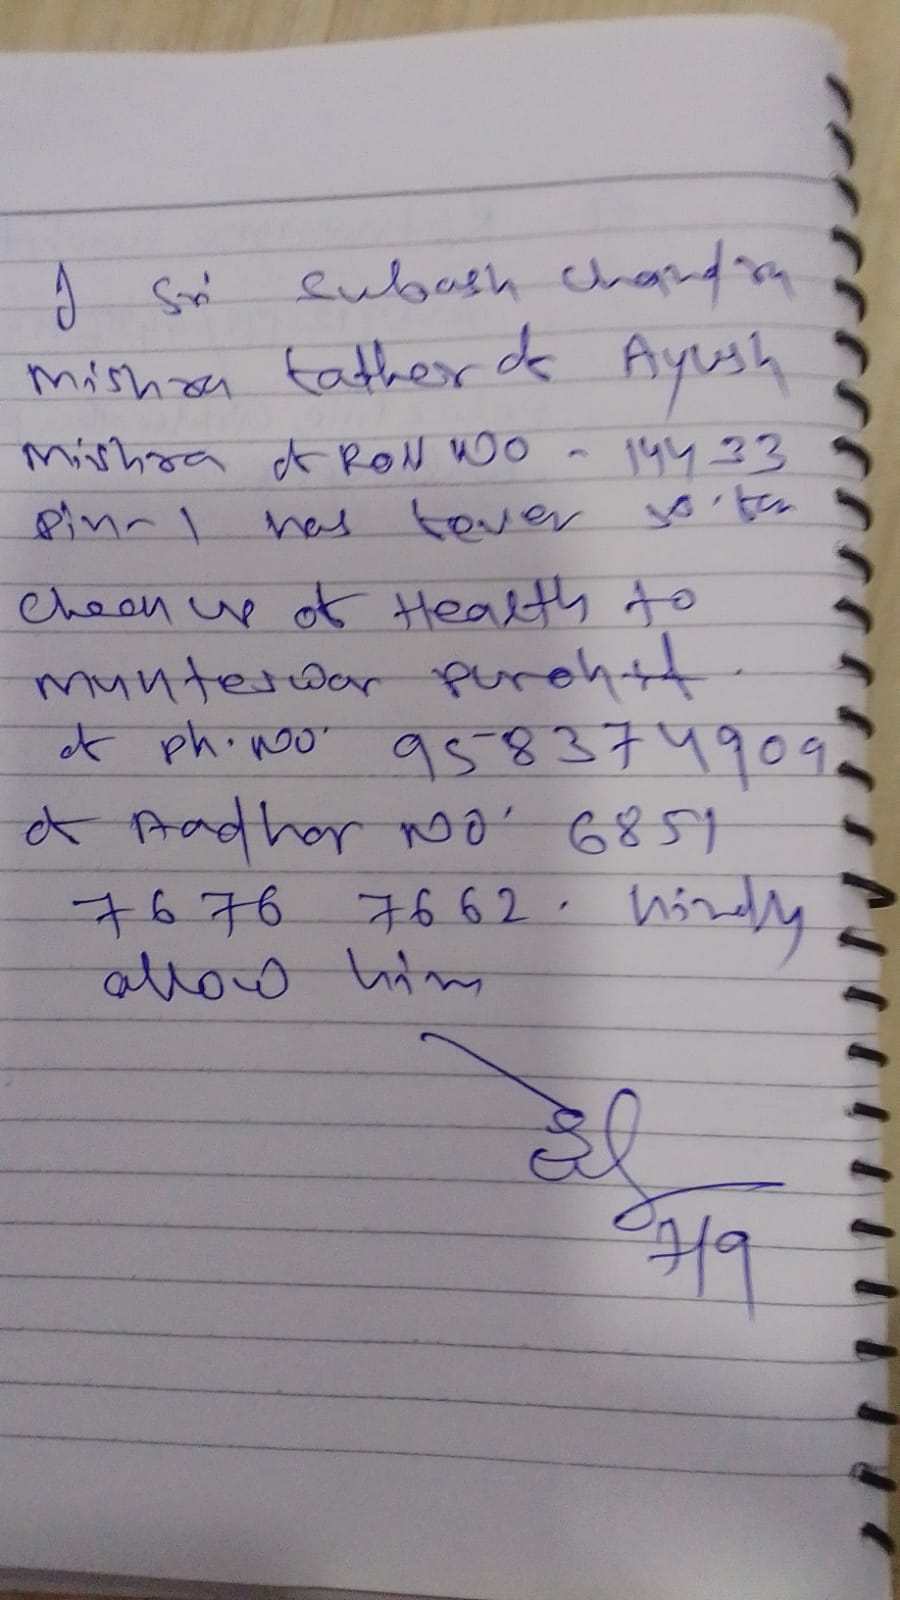 I Sri Subash Chandra
Mishra father of Ayush
Mishra of Roll No - 14433
has fever
Check up of Health to
Munteswar purohit.
of ph. No. 958374909
of Aadhar No. 6851
7676 7662. kindly
allow him
7/9